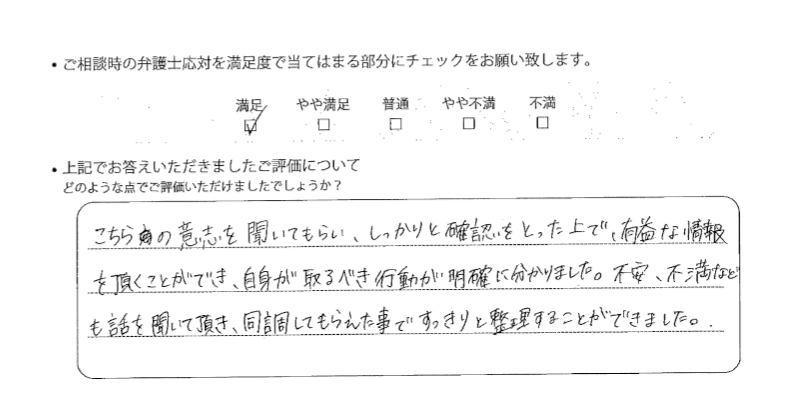 • ご相談時の弁護士応対を満足度で当てはまる部分にチェックをお願い致します。
満足 やや満足 普通 やや不満 不満
☑ □ □ □ □
• 上記でお答えいただきましたご評価について
どのような点でご評価いただけましたでしょうか？
こちらの意志を聞いてもらい、しっかりと確認をとった上で、有益な情報
を頂くことができ、自身が取るべき行動が明確に分かりました。不安、不満など
も話を聞いて頂き、同調してもらえた事ですっきりと整理することができました。